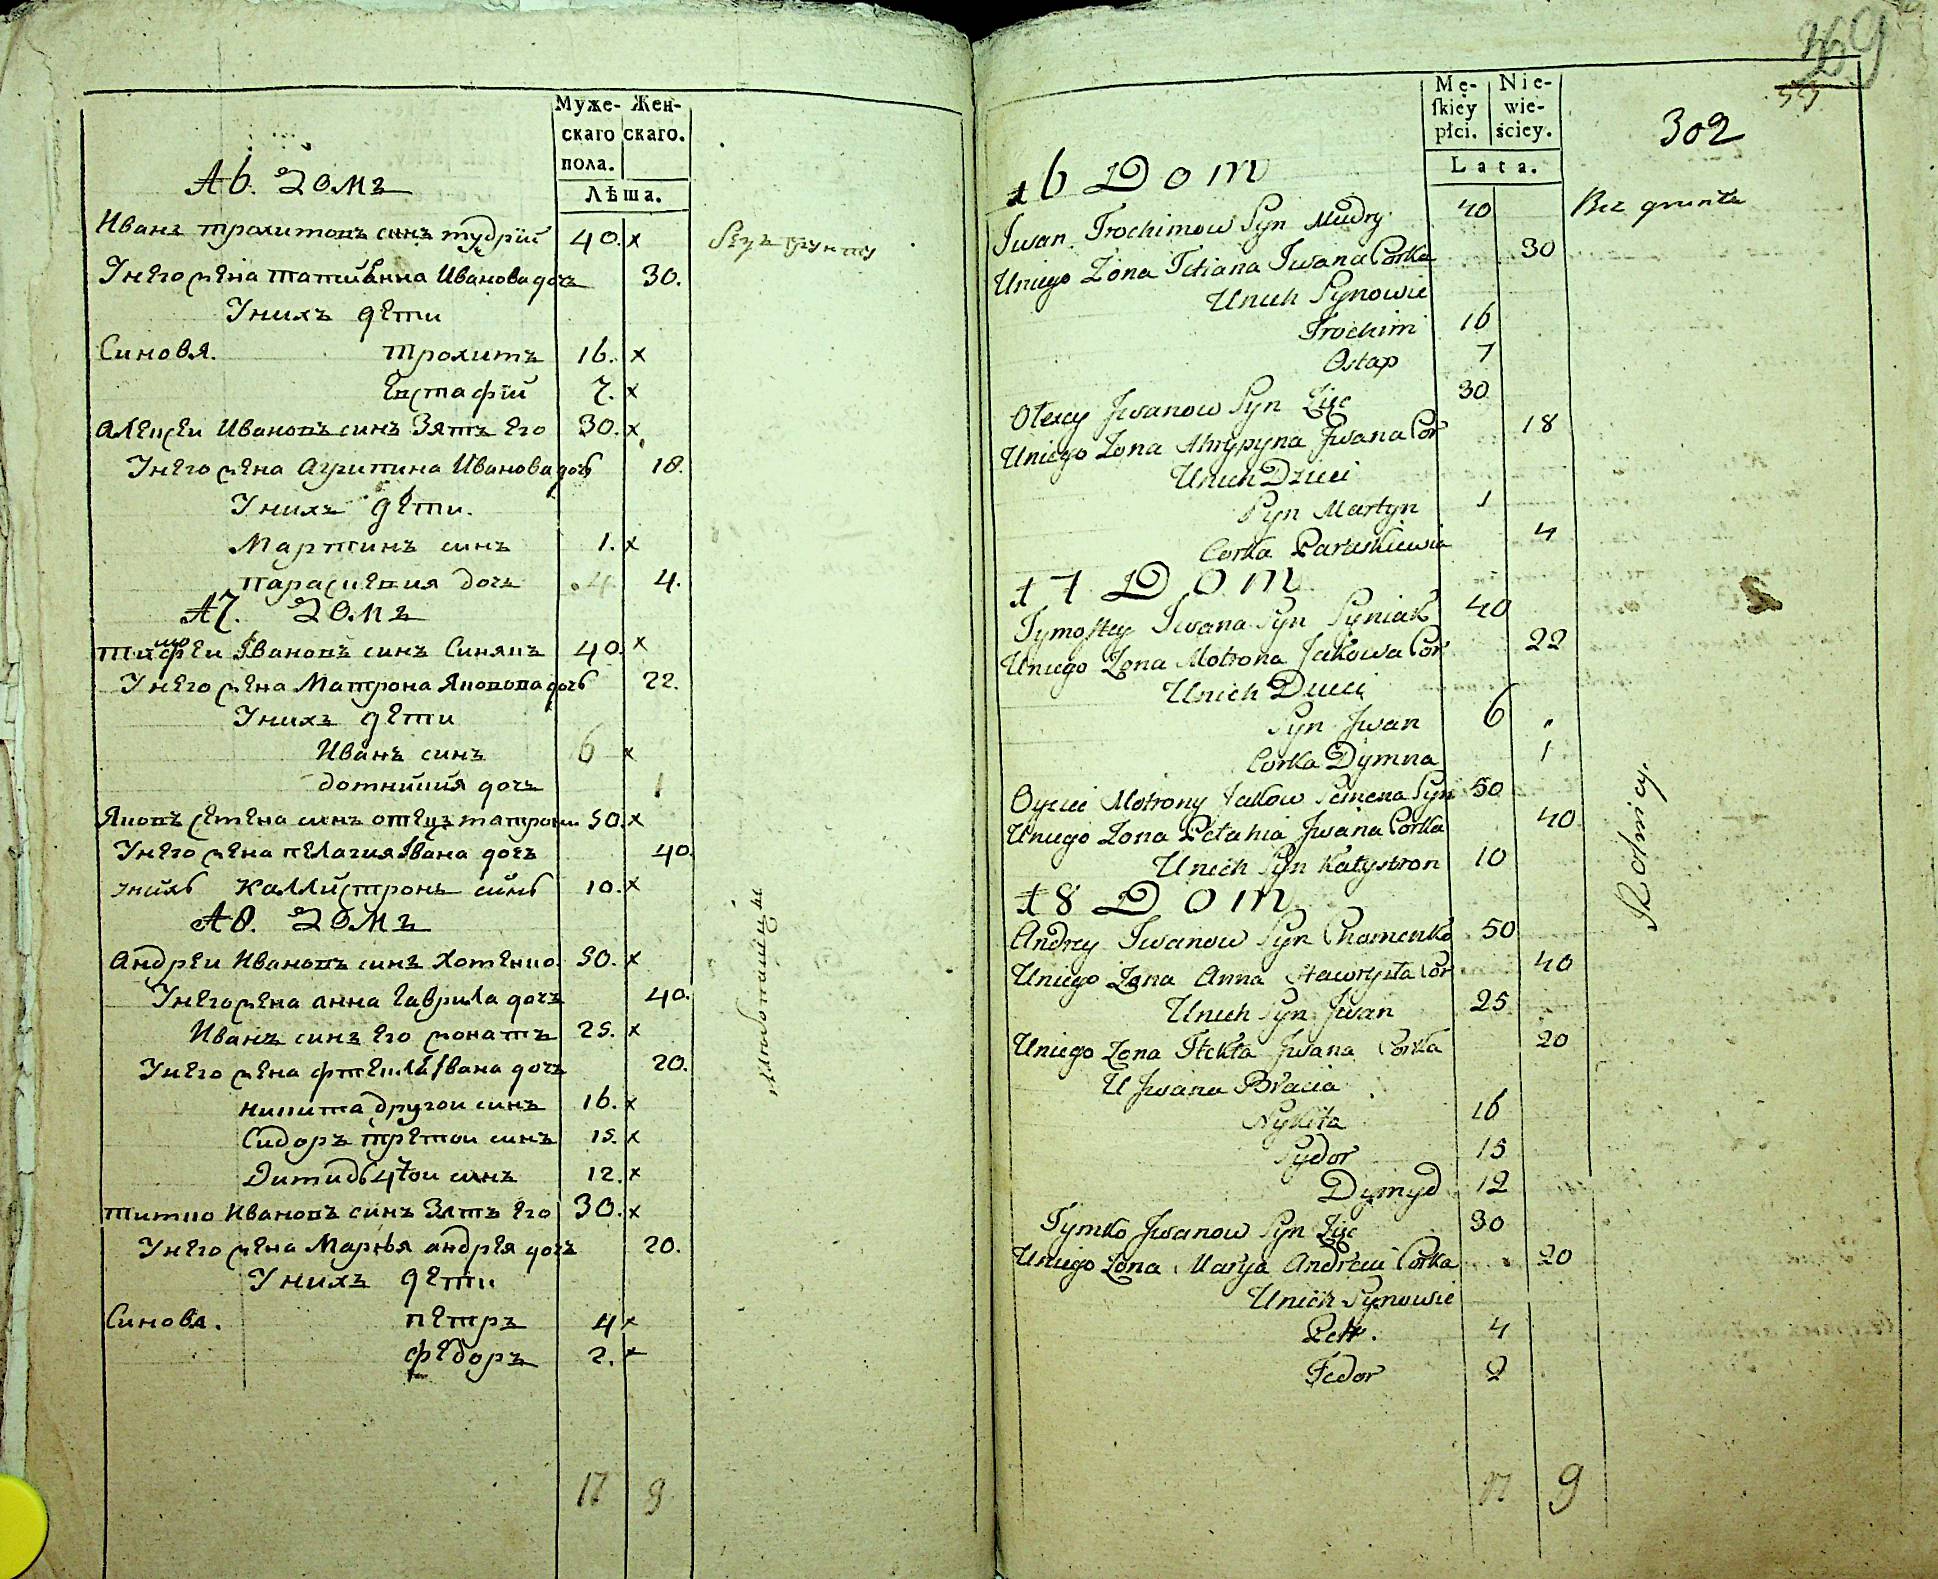 Муже- Жен-
скаго скаго.
пола.
Лѣта.
16. Домъ
Иванъ трохимовъ синъ мудрий 40. х безъ грунту
У него жена татиянна Иванова дочъ 30.
У нихъ дети
Синовя. трохимъ 16. х
Евстафий 7. х
Алексеи Ивановъ синъ Зятъ Его 30. х
У него жена Агрипина Иванова дочъ 18.
У нихъ дети.
Мартинъ синъ 1. х
параскевия дочъ 4.
17. Домъ
тимофеи Ивановъ синъ Синякъ 40. х
У него жена Матрона Яковова дочъ 22.
У нихъ дети
Иванъ синъ 6 х
домникия дочъ 1
Яковъ семена синъ отецъ матрони 50. х
У него жена пелагия Ивана дочъ 40.
У нихъ Каллистронъ синъ 10. х
18. Домъ
Андреи Ивановъ синъ Хоменко 50. х
У него жена анна Гаврила дочъ 40.
Иванъ синъ Его женатъ 25. х
У него жена фтекла Ивана дочъ 20.
никита другои синъ 16. х
Сидоръ третои синъ 15. х
Димидъ 4тои синъ 12. х
тимко Ивановъ синъ Зятъ Его 30. х
У него жена Маръя андрея дочъ 20.
У нихъ дети
Синовя. петръ 4 х
федоръ 2. х
17 9
369
302
Mę- Nie-
skiey wie-
płci. ściey.
Lata.
16 Dom
Iwan Trochimow Syn Mudry 40 Bez gruntu
Uniego Zona Tetiana Iwana Corka 30
Unich Synowie
Trochim 16
Ostap 7
Olexy Iwanow Syn Zięc 30
Uniego Zona Ahrypyna Iwana Cor 18
Unich Dzieci
Syn Martyn 1
Corka Paraskiewia 4
17 Dom
Tymofiey Iwana Syn Syniak 40
Uniego Zona Motrona Jakowa Cor 22
Unich Dzieci
Syn Iwan 6
Corka Dymna 1
Oyciec Motrony Jakow Semena Syn 50
Uniego Zona Pelahia Iwana Corka 40
Unich Syn Kalystron 10
18 Dom
Andrey Iwanow Syn Chomenko 50
Uniego Zona Anna Hawryła Cor 40
Unich Syn Iwan 25
Uniego Zona Ftekla Iwana Corka 20
U Iwana Bracia
Nykita 16
Sydor 15
Dymyd 12
Tymko Iwanow Syn Zięc 30
Uniego Zona Marya Andreia Corka 20
Unich Synowie
Petr. 4
Fedor 2
Rolnicy.
17 9